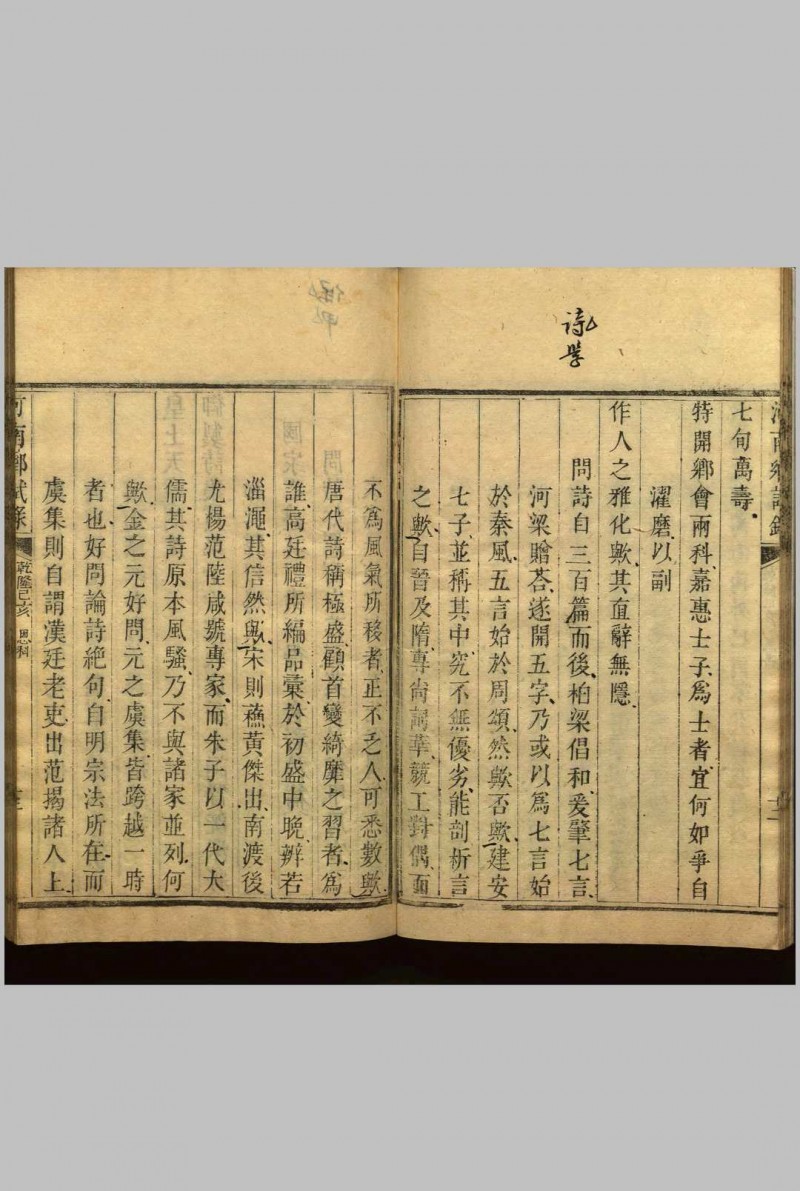 詩學
河南鄉試錄
七旬萬壽
特開鄉會兩科嘉惠士子爲士者宜何如爭自
濯磨以副
作人之雅化歟其直辭無隱
問詩自三百篇而後柏梁倡和爰肇七言
河梁贈荅遂開五字乃或以爲七言始
於秦風五言始於周頌然歟否歟建安
七子並稱其中究不無優劣能剖析言
之歟自晉及隋專尙詞華競工對偶而
不爲風氣所移者正不乏人可悉數歟
唐代詩稱極盛顧首變綺靡之習者爲
誰高廷禮所編品彙於初盛中晚辨若
淄澠其信然歟宋則蘇黃傑出南渡後
尤楊范陸咸號專家而朱子以一代大
儒其詩原本風騷乃不與諸家並列何
歟金之元好問元之虞集皆跨越一時
者也好問論詩絶句自明宗法所在而
虞集則自謂漢廷老吏出范揭諸人上
河南鄉試錄
乾隆己亥
恩科